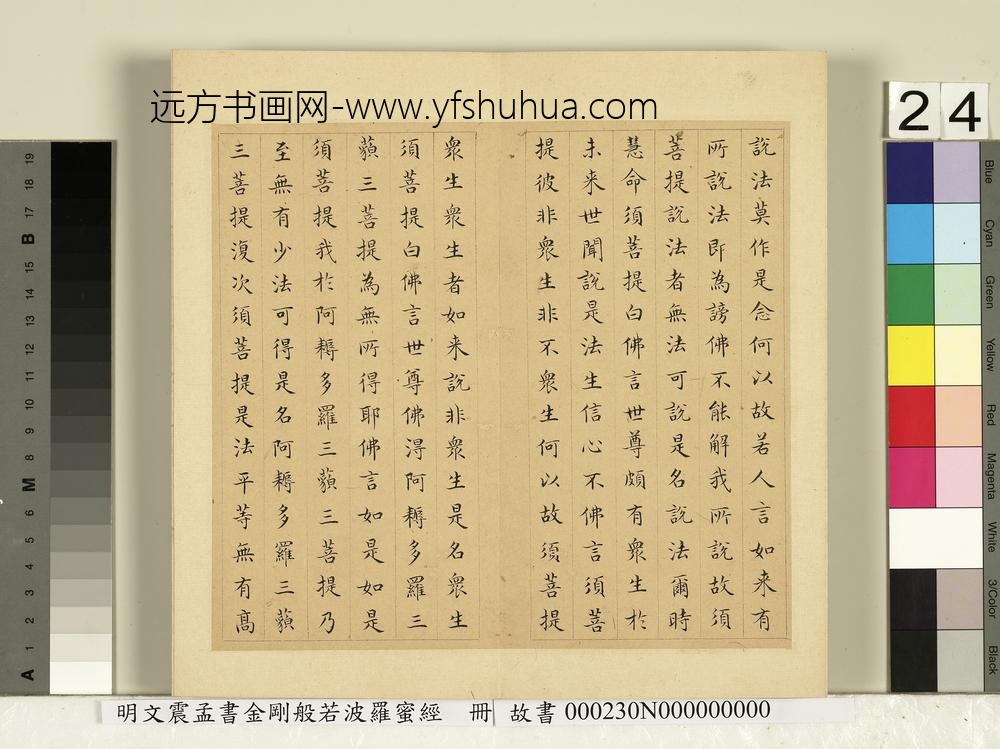 远方书画网-www.yfshuhua.com
24
說法莫作是念何以故若人言如来有
所說法即為謗佛不能解我所說故須
菩提說法者無法可說是名說法爾時
慧命須菩提白佛言世尊頗有衆生於
未来世聞說是法生信心不佛言須菩
提彼非衆生非不衆生何以故須菩提
衆生衆生者如来說非衆生是名衆生
須菩提白佛言世尊佛淂阿耨多羅三
藐三菩提為無所得耶佛言如是如是
須菩提我於阿耨多羅三藐三菩提乃
至無有少法可得是名阿耨多羅三藐
三菩提復次須菩提是法平等無有髙
A 1 2 3 4 5 6 M 8 9 10 11 12 13 14 15 B 17 18 19
Blue
Cyan
Green
Yellow
Red
Magenta
White
3/Color
Black
明文震孟書金剛般若波羅蜜經 冊 故書 000230N000000000